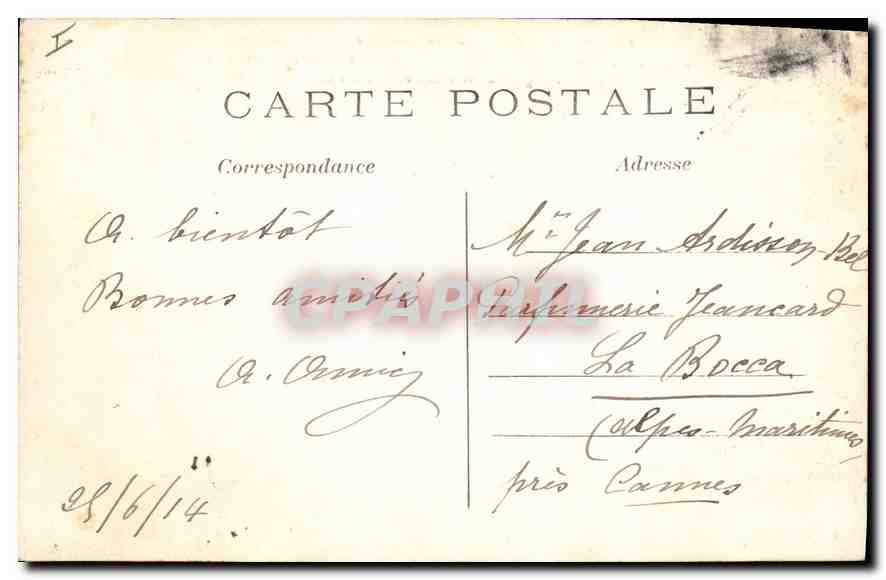 I
CARTE POSTALE
Correspondance
A bientôt
Bonnes amitiés
A.
25/6/14
Adresse
Mr Jean Ardisson-Bel
Parfumerie Jeancard
La Bocca
(Alpes-Maritimes)
près Cannes
CPAPRIL